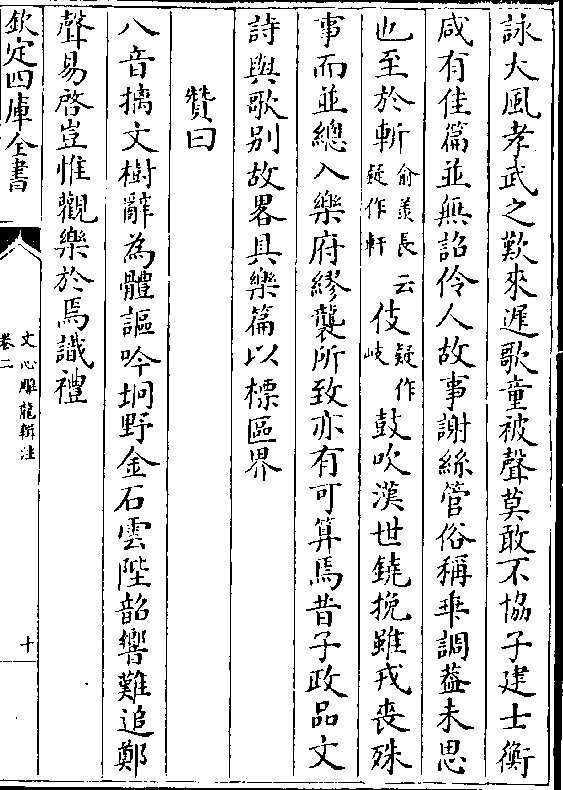 詠大風孝武之歎來遲歌童被聲莫敢不協子建士衡
咸有佳篇並無詔伶人故事謝絲管俗稱乖調葢未思
也至於斬俞羡長云疑作軒伎疑作岐鼓吹漢世鐃挽雖戎喪殊
事而並總入樂府繆襲所致亦有可算焉昔子政品文
詩與歌别故畧具樂篇以標區界
贊曰
八音摛文樹辭為體謳吟坰野金石雲陛韶響難追鄭
聲易啓豈惟觀樂於焉識禮
欽定四庫全書
文心雕龍輯注
卷二
十